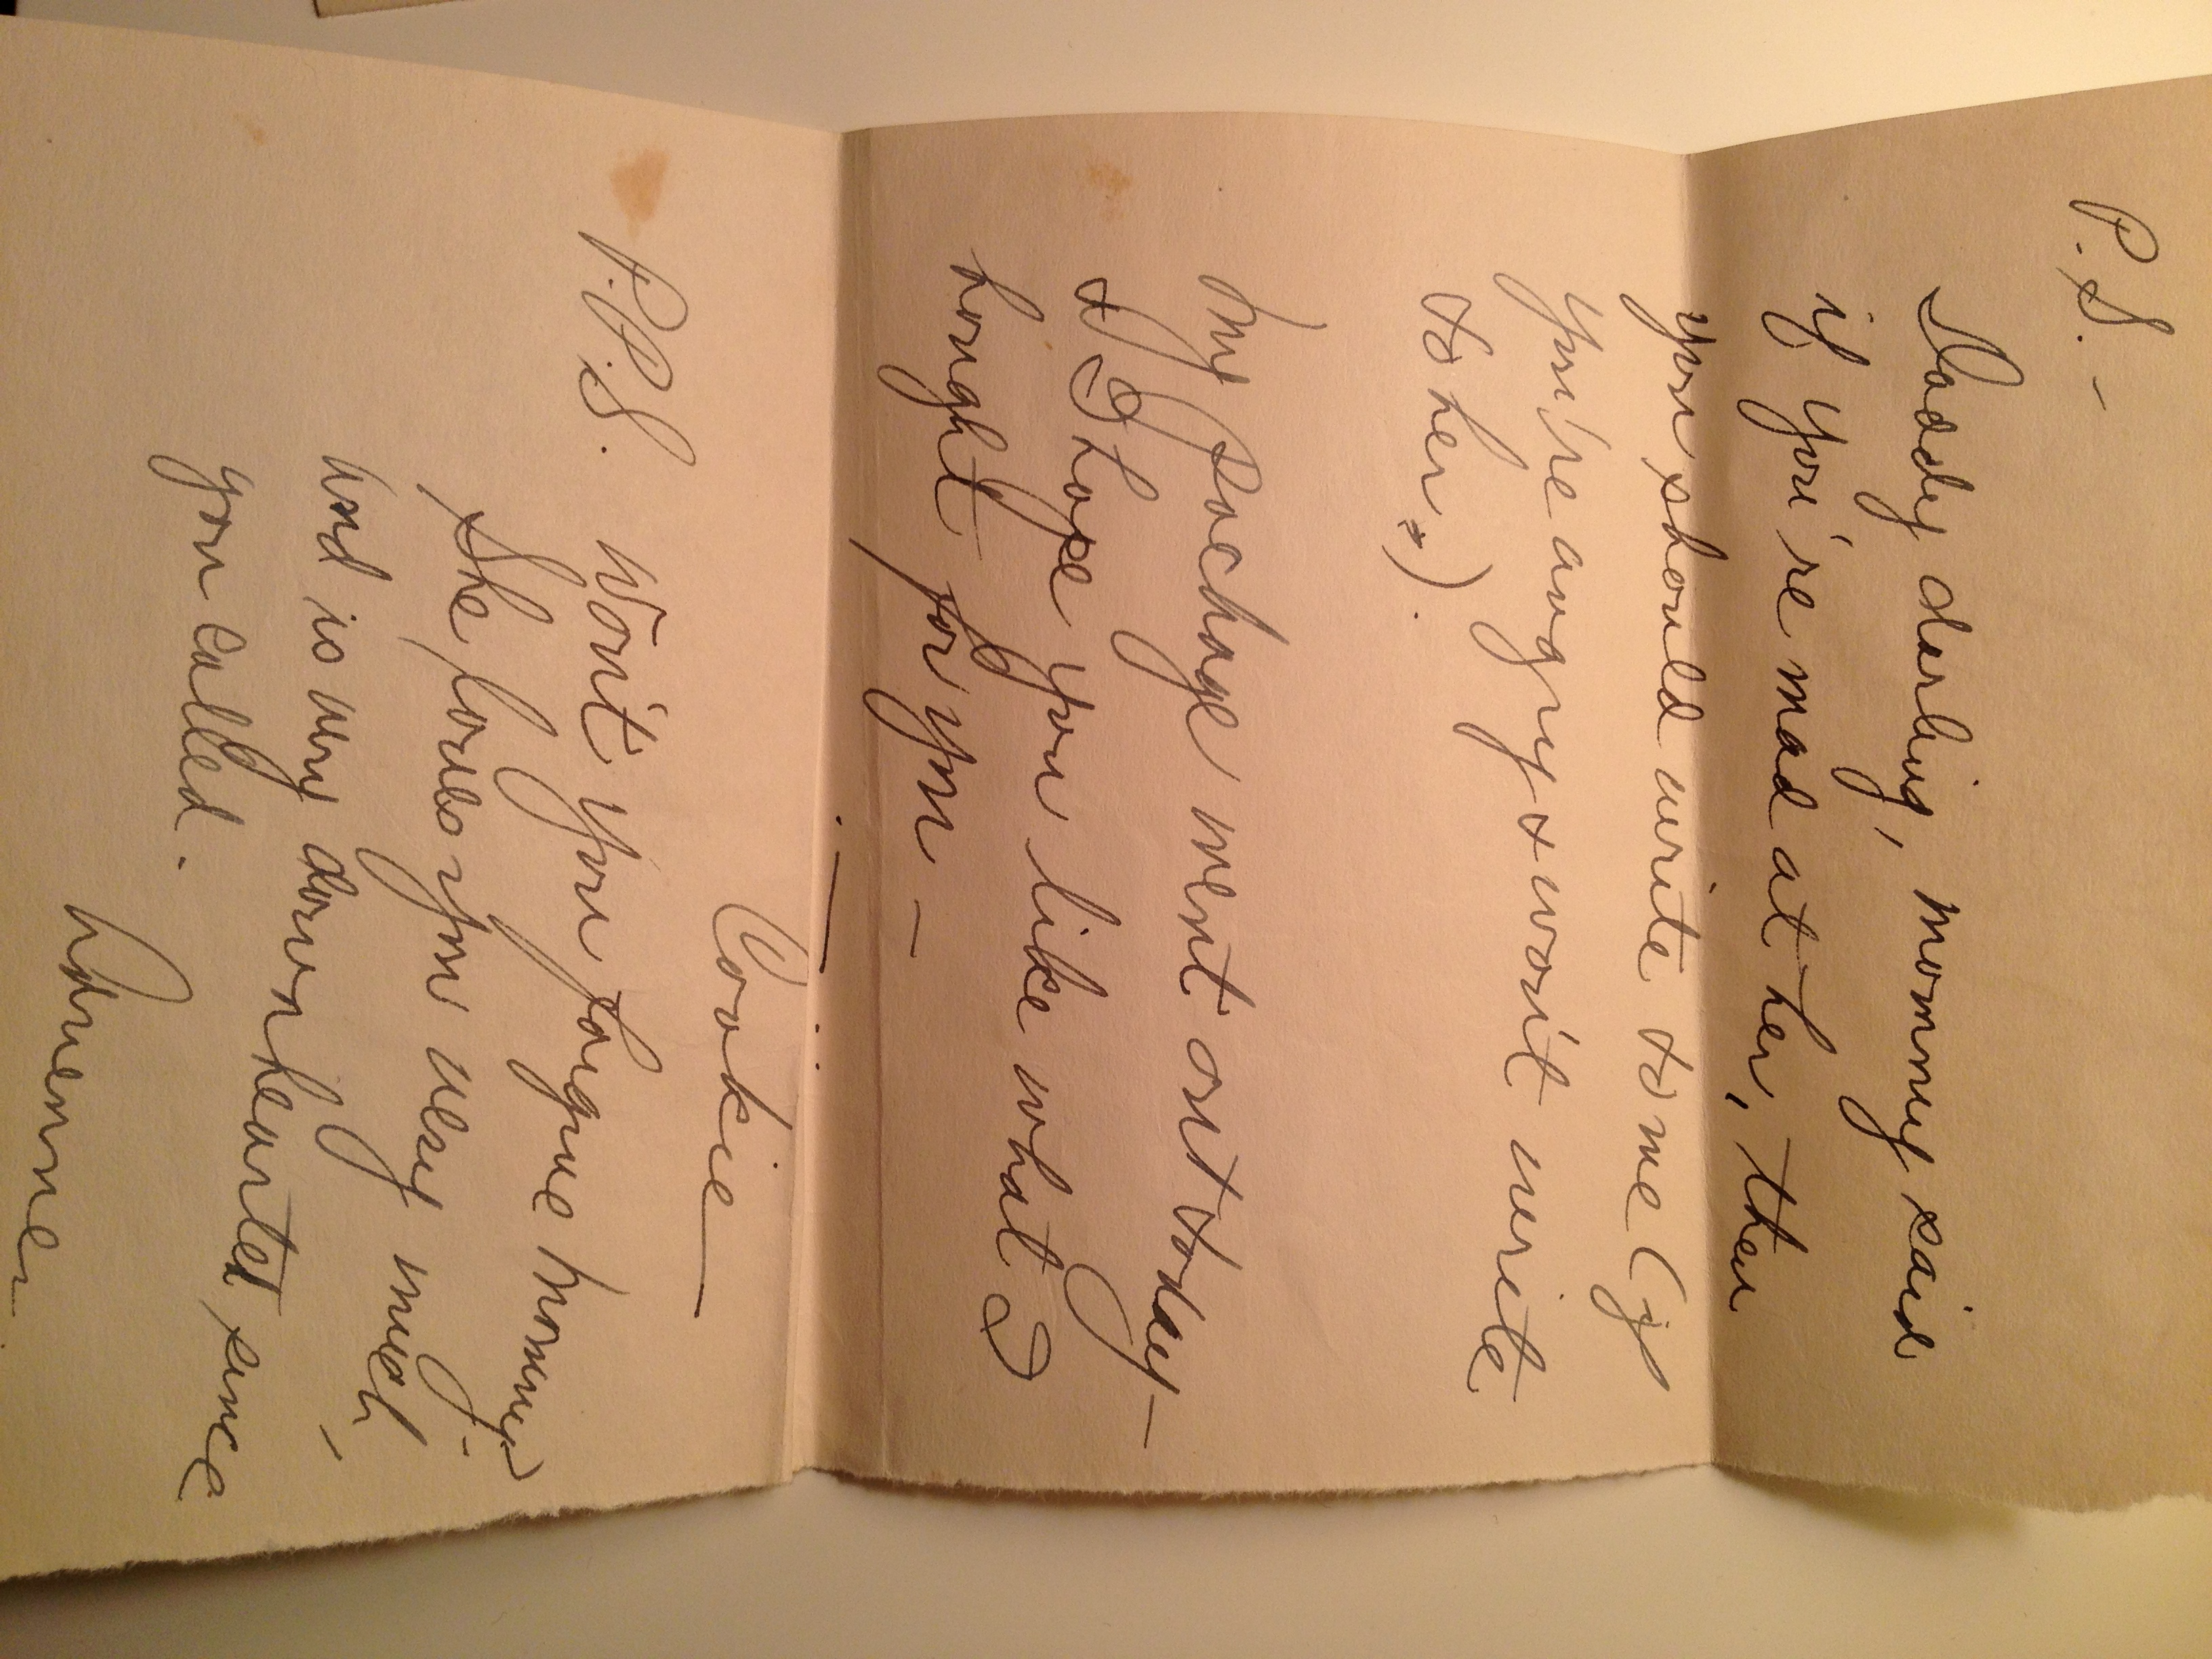 P.S. —
Daddy darling, mommy said
if you're mad at her, then
you should write to me (if
you're angry & won't write
to her.)
My package went out today —
& I hope you like what I
bought for you —
Cookie
P.P.S. Won't you forgive mommy
She loves you very much,
and is very downhearted since
you called.